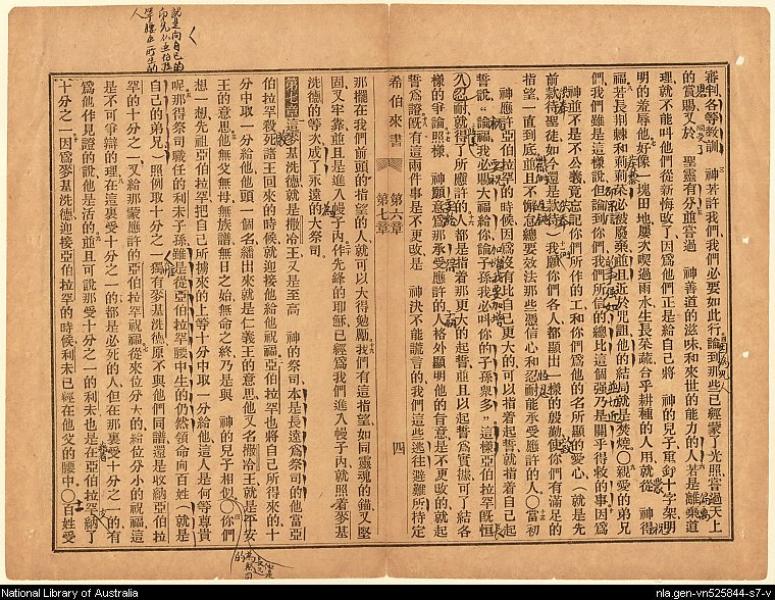 審判、各等敎訓、 神若許我們、我們必要如此行。論到那些已經蒙了光照、嘗過天上
的賞賜、又於 聖靈有分、並嘗過 神善道的滋味、和來世的能力的人、若是離棄道
理、就不能叫他們從新悔改了、因爲他們正是給自己將 神的兒子、重釘十字架、明
明的羞辱他。好像一塊田地、屢次喫過雨水、生長菜蔬、合乎耕種的人用、就從 神得
福。若長荆棘和蒺藜、必被廢棄、並且近於咒詛、他的結局、就是焚燒。〇親愛的弟兄
們、我們雖是這樣說、但論到你們、我們所信的總比這個強、乃是關乎得救的事、因爲
神並不是不公義、竟忘記你們所作的工、和你們爲他的名所顯的愛心、(就是先
前款待聖徒、如今還是款待)我願你們各人、都顯出一樣的殷勤、使你們有滿足的
指望、一直到底、並且不懈怠、總要效法那些憑信心和忍耐、能承受應許的人。〇當初
神應許亞伯拉罕的時候、因爲沒有比自己更大的、可以指着起誓、就指着自己起
誓說、論福我必賜大福給你、論子孫我必叫你的子孫衆多、這樣亞伯拉罕旣恒
久忍耐、就得了所應許的。人都是指着那更大的起誓、並且以起誓爲實據、可了結各
樣的爭論。照樣 神願意爲那承受應許的人、格外顯明他的旨意、是不更改的、就起
誓爲證。旣有這兩件事、是不更改、是 神決不能謊言的、我們這些逃往避難所、持定
希伯來書 第六章 第七章 四
那擺在我們前頭的指望的人、就可以大得勉勵。我們有這指望、如同靈魂的錨、又堅
固、又牢靠、並且是進入幔子內。作先鋒的耶穌、已經爲我們進入幔子內、就照着麥基
洗德的等次、成了永遠的大祭司。
第七章 這麥基洗德、就是撒冷王、又是至高 神的祭司、本是長遠爲祭司的、他當亞
伯拉罕殺死諸王回來的時候、就迎接他、給他祝福。亞伯拉罕也將自己所得來的十
分中取一分給他、他頭一個名、繙出來、就是仁義王的意思、他又名撒冷王、就是平安
王的意思、他無父、無母、無族譜、無日之始、無命之終、乃是與 神的兒子相似。〇你們
想一想、先祖亞伯拉罕、把自己所擄來的上等十分中取一分給他、這人是何等尊貴
呢。那得祭司職任的利未子孫、雖是從亞伯拉罕腰中生的、仍然領命向百姓、(就是
自己的弟兄)照例取十分之一。獨有麥基洗德、原不與他們同譜、還是收納亞伯拉
罕的十分之一、又給那蒙應許的亞伯拉罕祝福。從來位分大的、給位分小的祝福、這
是不可爭辯的理。在這裏受十分之一的、都是必死的人、但在那裏受十分之一的、有
爲他作見證的說、他是活的。並且可說、那受十分之一的利未、也是在亞伯拉罕納了
十分之一。因爲麥基洗德迎接亞伯拉罕的時候、利未已經在他父的腰中。〇百姓受
National Library of Australia
nla.gen-vn525844-s7-v